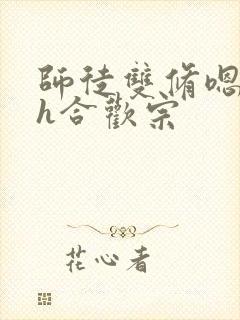 師徒雙脩嗯
h合歡宗
花心者